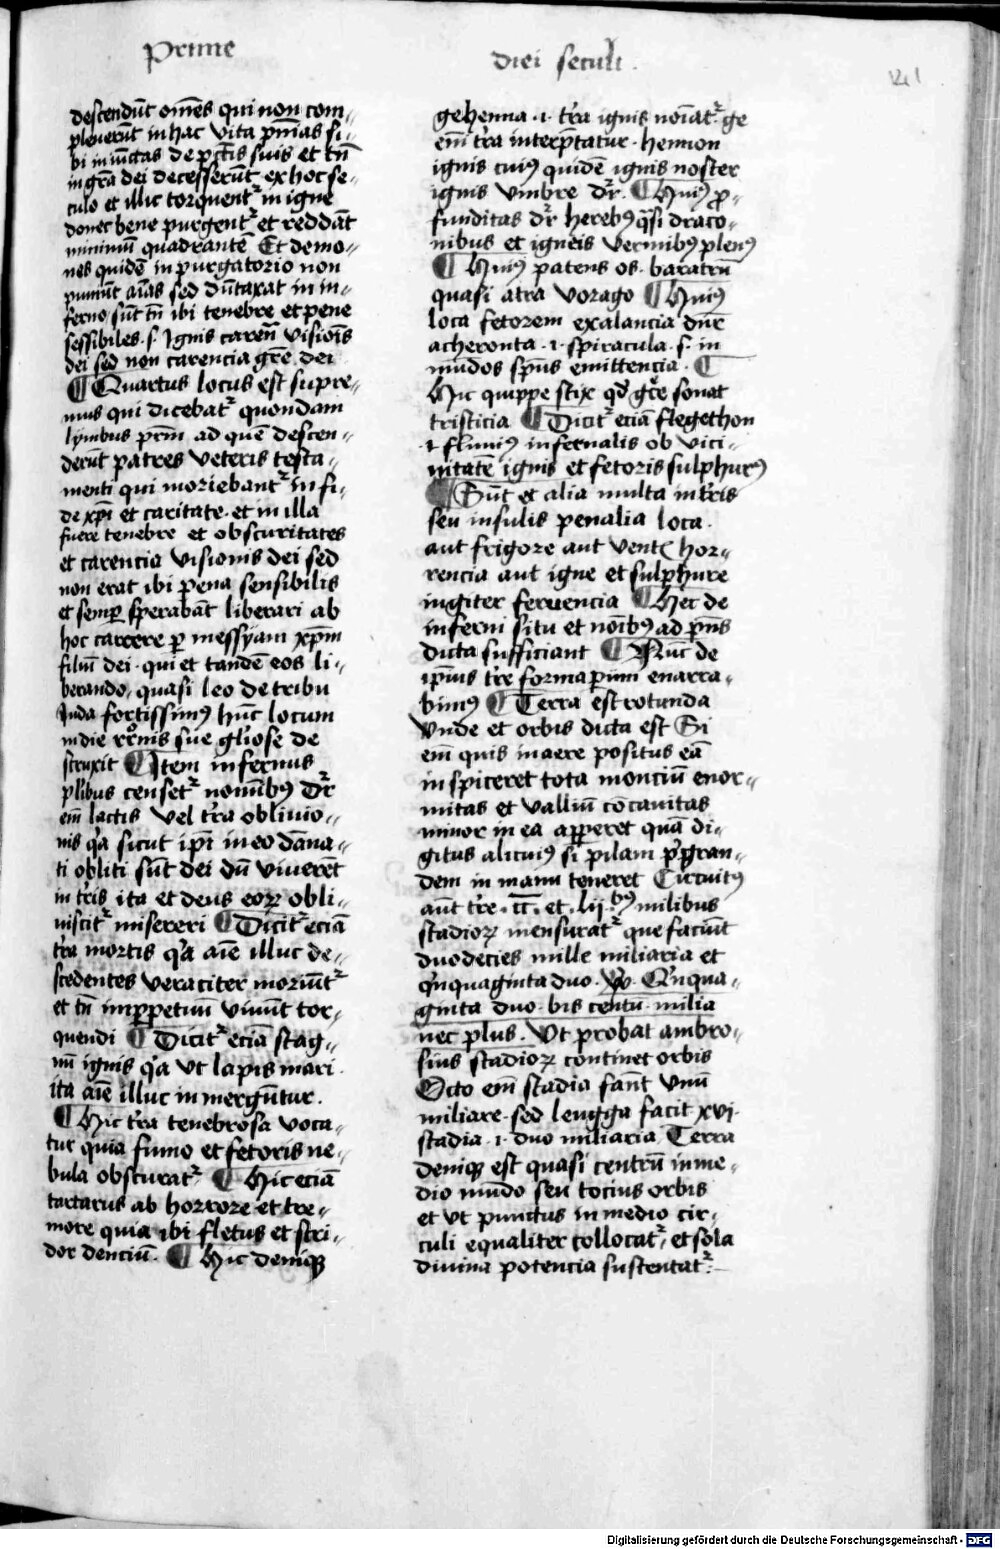 Prime diei seculi
descendūt om̄es qui non com„
pleuerūt in hac vita pn̄ias si„
bi iniūctas de pctīs suis et tn̄
in grā dei decesserūt ex hoc se„
culo et illic torquentᷣ in igne
donec bene purgentᷣ et reddāt
minimū quadrantē Et demo„
nes quidē in purgatorio non
puniūt aīas sed dūtaxat in in„
ferno sūt tn̄ ibi tenebre et pene
sessibiles .s. Ignis caren̄ visiōis
dei sed non carencia grē dei
¶ Quartus locus est supre„
mus qui dicebatᷣ quondam
lymbus prm̄ ad quē descen„
derūt patres veteris testa„
menti qui moriebantᷣ in fi„
de xp̄i et caritate et in illa
fuere tenebre et obscuritates
et carencia visionis dei sed
non erat ibi pena sensibilis
et semꝑ sperabāt liberari ab
hoc carcere ꝑ messyam xp̄m
filiū dei · qui et tandē eos li„
berando, quasi leo de tribu
Juda fortissimꝰ hūc locum
in die rr̄onis sue glīose de
struxit ¶ Item infernus
plībus censetᷣ nominibꝰ dᷣr
em̄ lactis vel tr̄a obliuio„
nis qᷓ sicut ip̄i in eo dāna„
ti obliti sūt dei dū viuerēt
in tr̄is ita et deus eoꝝ obli„
uiscitᷣ misereri ¶ Dicitᷣ eciā
tr̄a mortis qᷓ aīe illuc de„
scedentes veraciter moriūtᷣ
et tn̄ imꝑpetuū viuūt tor„
quendi ¶ Dicitᷣ eciā stag„
nū ignis qᷓ vt lapis mari
ita aīe illuc in mergūtur .
¶ Hic tr̄a tenebrosa voca„
tur quia fumo et fetoris ne„
bula obscuratᷣ ¶ Hic eciā
tartarus ab horrore et tre„
more quia ibi fletus et stri„
dor denciū · ¶ Hic deniqꝫ
gehenna ·i· tr̄a ignis noīatᷣ ge
em̄ tr̄a interp̄tatur · hennon
ignis cuiꝰ quidē ignis noster
ignis vmbre dᷣr ¶ Huiꝰ ꝓ„
funditas dᷣr herebꝰ qᷓsi draco„
nibus et igneis vermibꝰ plenꝰ
¶ Huiꝰ patens os · baratrū
quasi atra vorago ¶ Huiꝰ
loca fetorem exalancia dūr
acheronta ·i· spiracula .s. in
mūdos spūs emittencia · ¶
Hic quippe stix qd̓ grēe sonat
tristicia ¶ Dicitᷣ eciā flegethon
·i· fluuiꝰ infernalis ob vici„
nitatē ignis et fetoris sulphurꝰ
¶ Sūt et alia multa in tr̄is
seu insulis penalia loca ·
aut frigore aut ventꝭ hor„
rencia aut igne et sulphure
iugiter feruencia ¶ Hec de
inferni situ et noībꝰ ad pn̄s
dicta sufficiant ¶ Nūc de
ip̄ius tr̄e forma ꝑum enarra„
bimꝰ ¶ Terra est rotunda
vnde et orbis dicta est Si
em̄ quis in aere positus eā
inspiceret tota monciū enor„
mitas et valliū cōcauitas
minor in ea apꝑeret quā di„
gitus alicuiꝰ si pilam p̄gran„
dem in manu teneret Circuitꝰ
aūt tr̄e · cc̄ · et · lij bꝰ milibus
stadioꝝ mensuratᷣ que faciūt
duodecies mille miliaria et
qͥnquaginta duo · Vꝰ · Qͥnqua„
ginta duo · bis centū · milia
nec plus . Vt probat ambro„
sius stadioꝝ continet orbis
Octo em̄ stadia faūt vnū
miliare · sed leugga facit xvi
stadia ·i· duo miliaria Terra
deniqꝫ est quasi centrū in me„
dio mūdo seu tocius orbis
et vt punctus in medio cir„
culi equaliter collocatᷣ et sola
diuina potencia sustentatᷣ ·
Digitalisierung gefördert durch die Deutsche Forschungsgemeinschaft - DFG